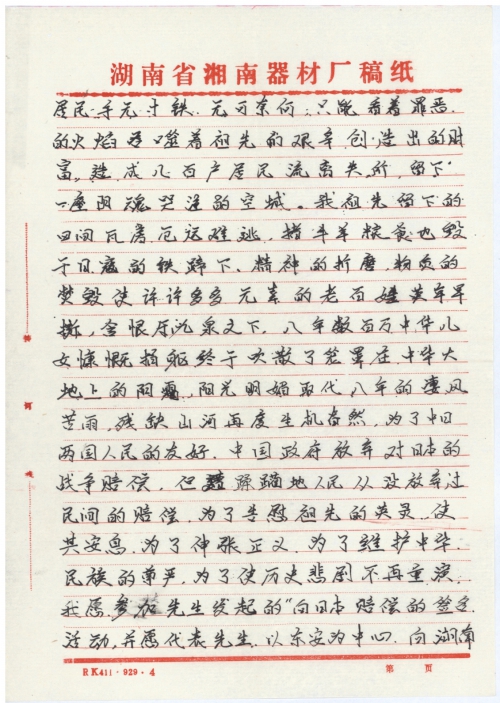 湖南省湘南器材厂稿纸
居民手无寸铁.无可奈何,只能看着罪恶.
的火焰吞噬着祖先的艰辛创造出的财
富,造成几百户居民流离失所,留下
一座阴魂哭泣的空城。我祖先留下的
四间瓦房厄运难逃,猪牛羊粮食也毁
于日寇的铁蹄下.精神的折磨,物质的
焚毁使许许多多无辜的老百姓英年早
逝,含恨厉九泉之下.八年数百万中华儿
女慷慨捐躯终于吹散了笼罩在中华大
地上的阴霾,阳光明媚取代八年的凄风
苦雨,残缺山河再度生机盎然,为了中日
两国人民的友好.中国政府放弃对日本的
战争赔偿,但蹂躏地人民从没放弃过
民间的赔偿,为了告慰祖先的英灵,使
其安息,为了伸张正义,为了维护中华
民族的尊严,为了使历史悲剧不再重演,
我愿参加先生发起的"向日本赔偿的签名
活动,并愿代表先生.以东安为中心.向湖南
RK411·929·4
第 页